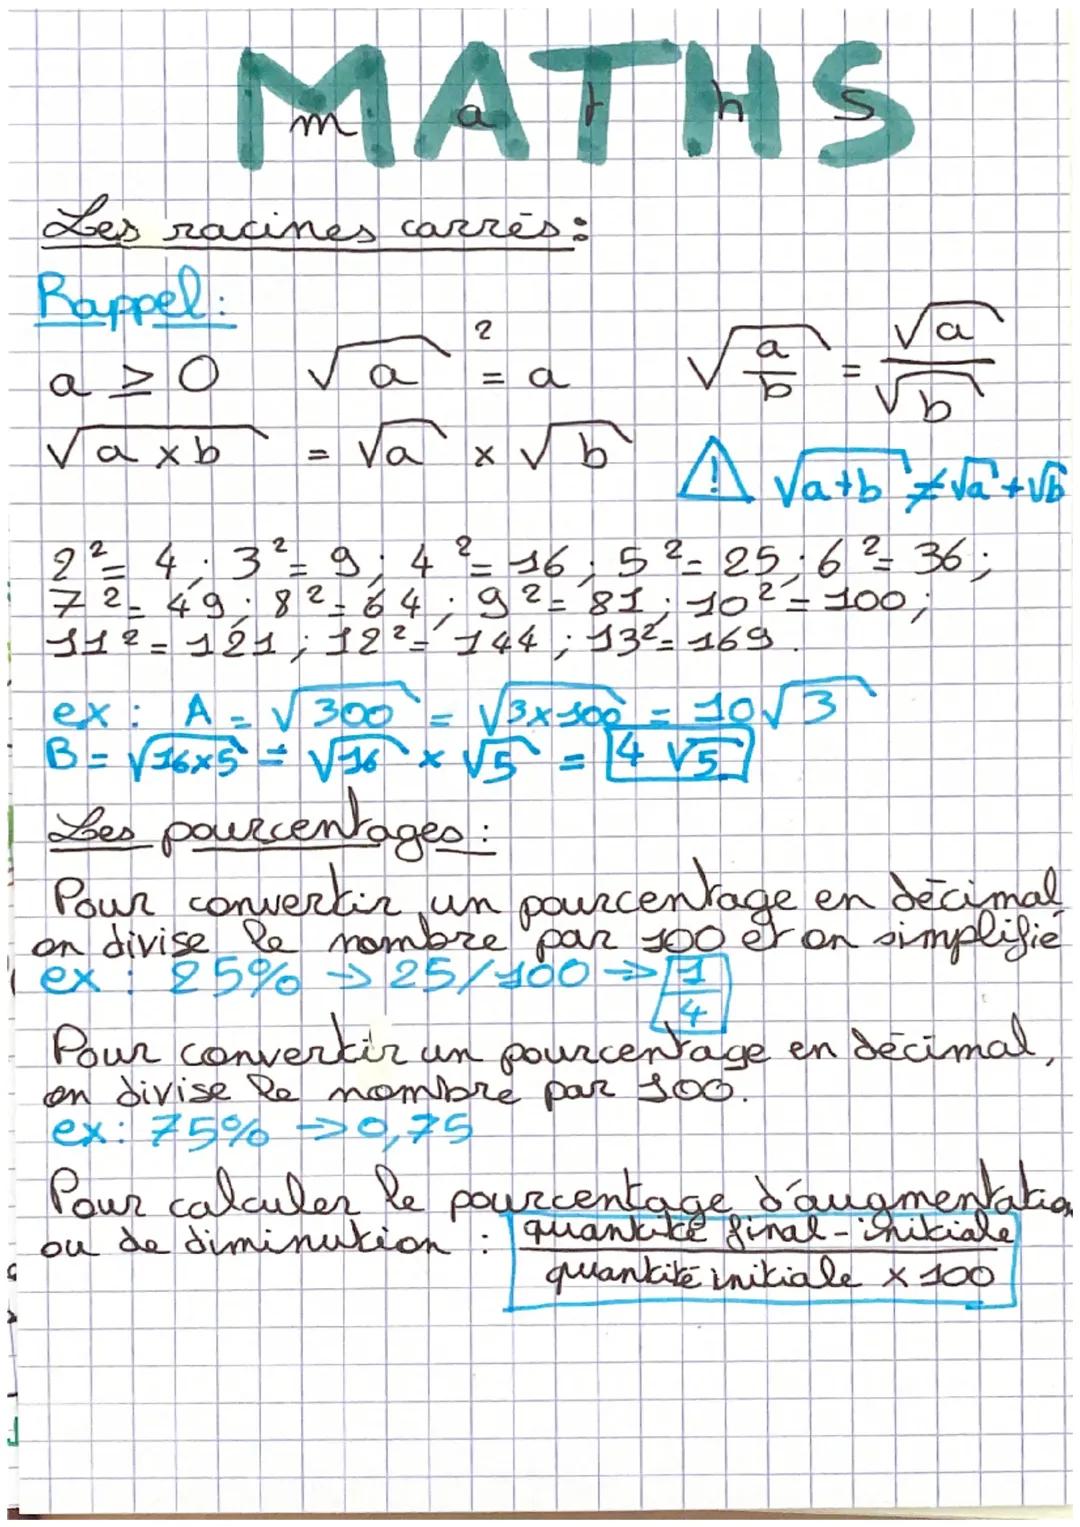 MATHS
maths
Les racines carrés :
Rappel :
a ≥ 0 √a² = a √(a/b) = √a/√b
√(a×b) = √a × √b
⚠ √(a+b) ≠ √a + √b
2² = 4 ; 3² = 9 ; 4² = 16 ; 5² = 25 ; 6² = 36 ;
7² = 49 ; 8² = 64 ; 9² = 81 ; 10² = 100 ;
11² = 121 ; 12² = 144 ; 13² = 169 .
ex : A = √300 = √(3×100) = 10√3
B = √(16×5) = √16 × √5 = 4√5
Les pourcentages :
Pour convertir un pourcentage en décimal,
on divise le nombre par 100 et on simplifie
ex : 25% → 25/100 → 1/4
Pour convertir un pourcentage en décimal,
on divise le nombre par 100.
ex : 75% → 0,75
Pour calculer le pourcentage d'augmentation
ou de diminution : quantité final - initiale
quantité initiale × 100